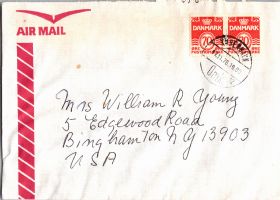 AIR MAIL
DANMARK DANMARK
Mrs William R Young
5 Edgewood Road
Binghamton NY 13903
USA